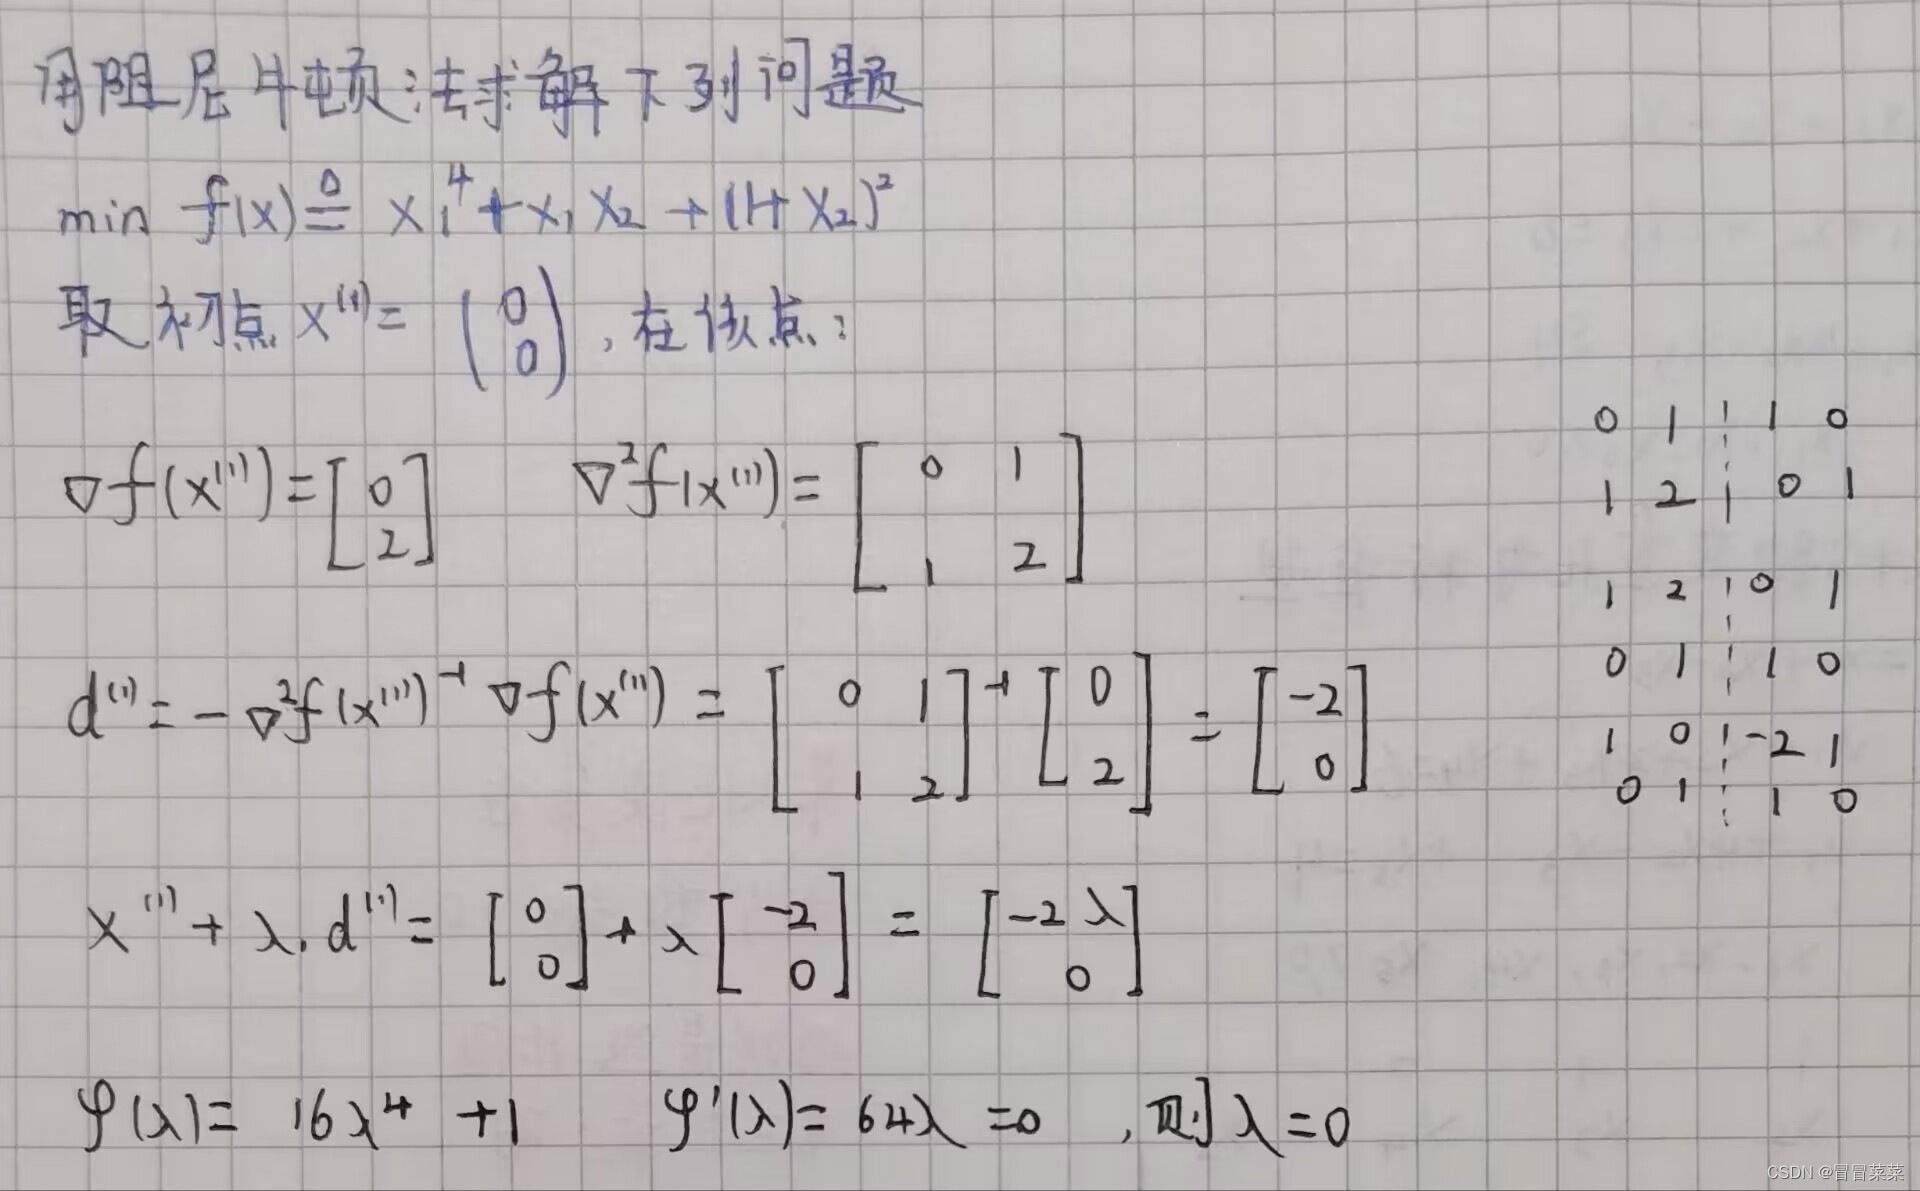 用阻尼牛顿法求解下列问题
min f(x) ≜ x₁⁴ + x₁x₂ + (1+x₂)²
取初点 x⁽¹⁾ = (0 0), 在该点:
∇f(x⁽¹⁾) = [0 2] ∇²f(x⁽¹⁾) = [0 1 1 2]
d⁽¹⁾ = -∇²f(x⁽¹⁾)⁻¹ ∇f(x⁽¹⁾) = [0 1 1 2]⁻¹ [0 2] = [-2 0]
x⁽¹⁾ + λ.d⁽¹⁾ = [0 0] + λ[-2 0] = [-2λ 0]
φ(λ) = 16λ⁴ + 1 φ'(λ) = 64λ = 0 , 则 λ = 0
0 1 ¦ 1 0
1 2 ¦ 0 1
1 2 ¦ 0 1
0 1 ¦ 1 0
1 0 ¦ -2 1
0 1 ¦ 1 0
CSDN @冒冒菜菜